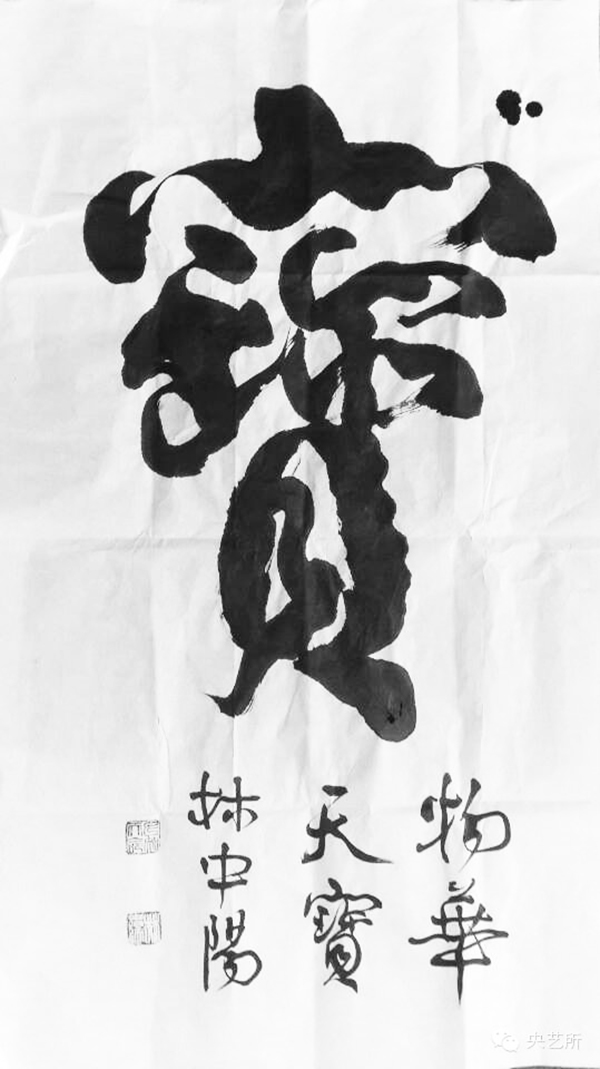 寶
物華
天寶
林中陽
央艺所